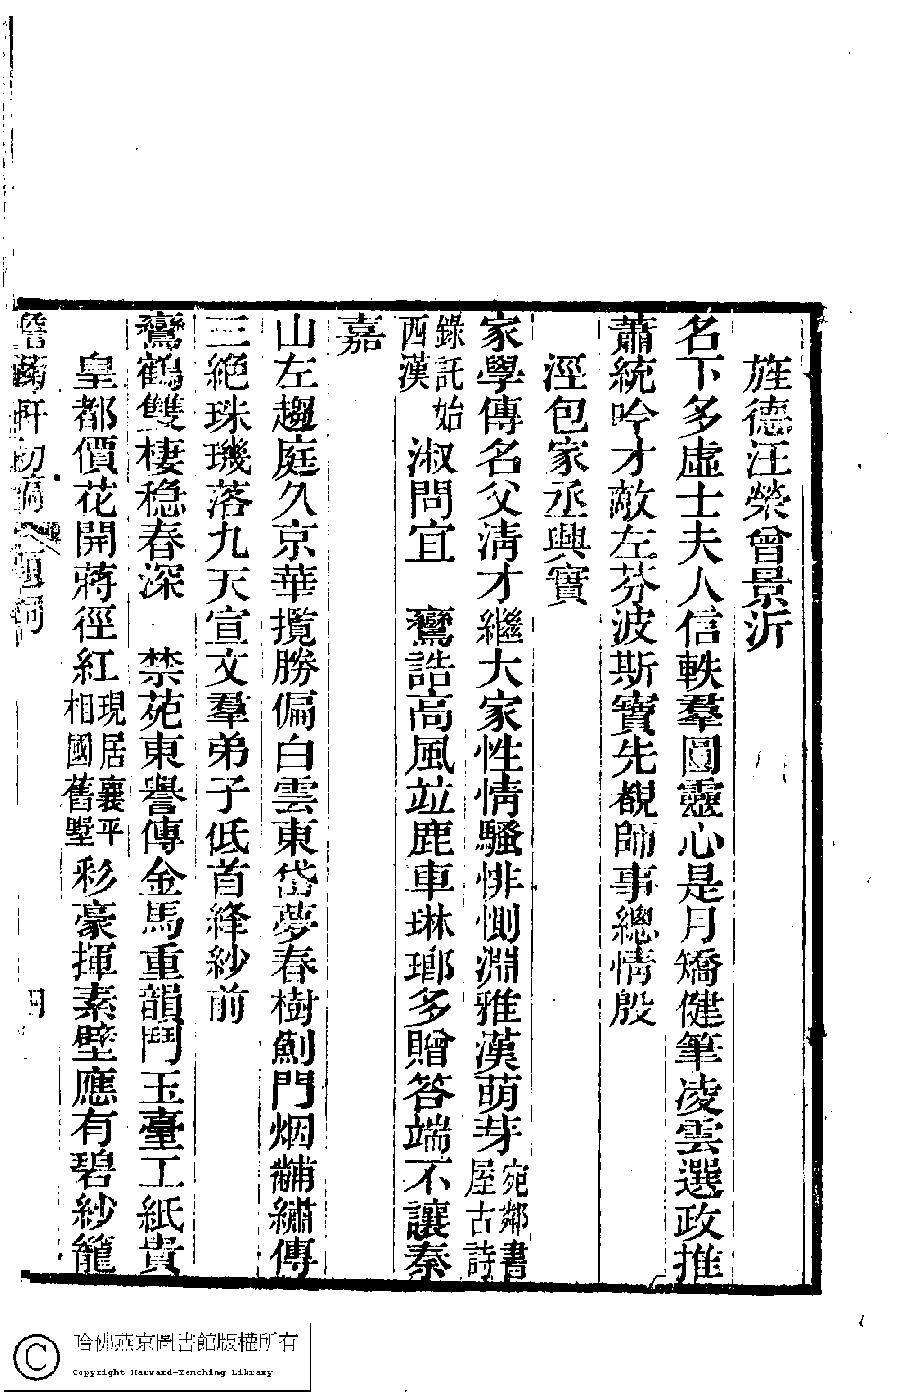 旌德汪榮曾景沂
名下多虛士夫人信軼羣圓靈心是月矯健筆凌雲選政推
蕭統吟才敵左芬波斯寶先覩師事總情殷
涇包家丞興實
家學傳名父淸才繼大家性情騷悱惻淵雅漢萌芽宛鄰書屋古詩
錄託始西漢淑問宜　鸞誥高風竝鹿車琳瑯多贈答端不讓秦
嘉
山左趨庭久京華攬勝偏白雲東岱夢春樹薊門烟黼繡傳
三絕珠璣落九天宣文羣弟子低首絳紗前
鸞鶴雙棲穩春深　禁苑東譽傳金馬重韻鬥玉臺工紙貴
皇都價花開蔣徑紅現居襄平相國舊墅彩豪揮素壁應有碧紗籠
軒初稿　題詞
四
哈佛燕京圖書館版權所有
Copyright Harvard-Yenching Library